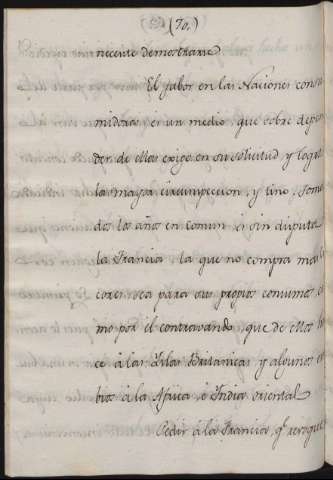 (70.)
necente demostrarse
El favor en las Naciones consu
midoras es un medio, que sobre depen
der de ellas exige en su solicitud y logro
la mayor circunspeccion, y tino. Toma
dos los años en comun es sin disputa
la Francia la que no compra mas
para sus propios consumos co
mo por el contravando, que de ellos ha
ce à las Yslas Britanicas y algunos
bios à la Africa è India oriental
Pedir à la Francia, qe. revoque